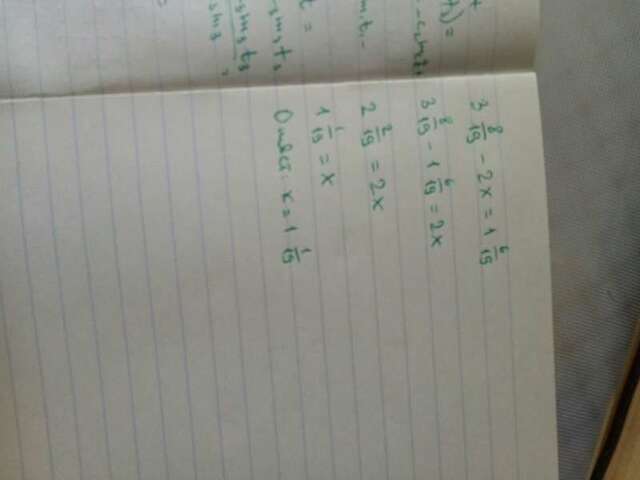 3 8/19 - 2x = 1 6/19
3 8/19 - 1 6/19 = 2x
2 2/19 = 2x
1 1/19 = x
Ответ: x = 1 1/19